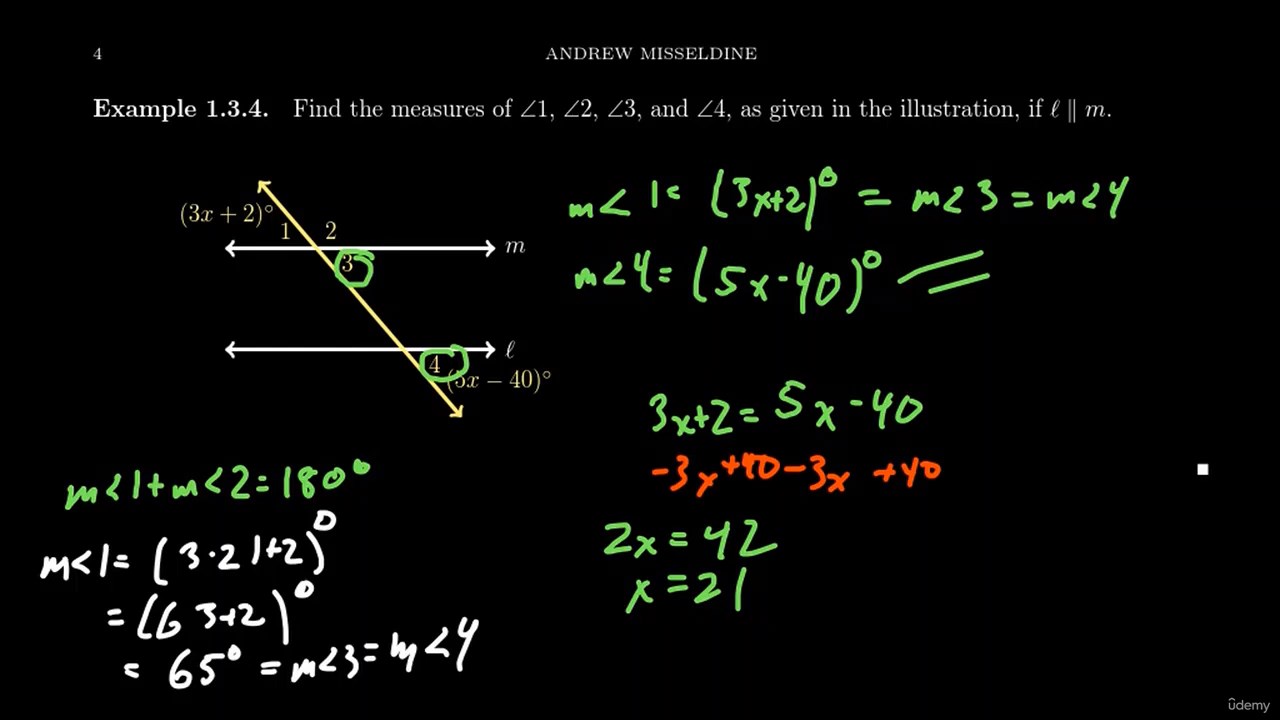 4 ANDREW MISSELDINE
Example 1.3.4. Find the measures of ∠1, ∠2, ∠3, and ∠4, as given in the illustration, if ℓ ∥ m.
(3x + 2)°
1 2
m
3
ℓ
4
(5x − 40)°
m<1 = (3x+2)° = m<3 = m<4
m<4 = (5x-40)°
3x+2 = 5x-40
-3x +40 -3x +40
2x = 42
x = 21
m<1 + m<2 = 180°
m<1 = (3·21+2)°
= (63+2)°
= 65° = m<3 = m<4
ûdemy